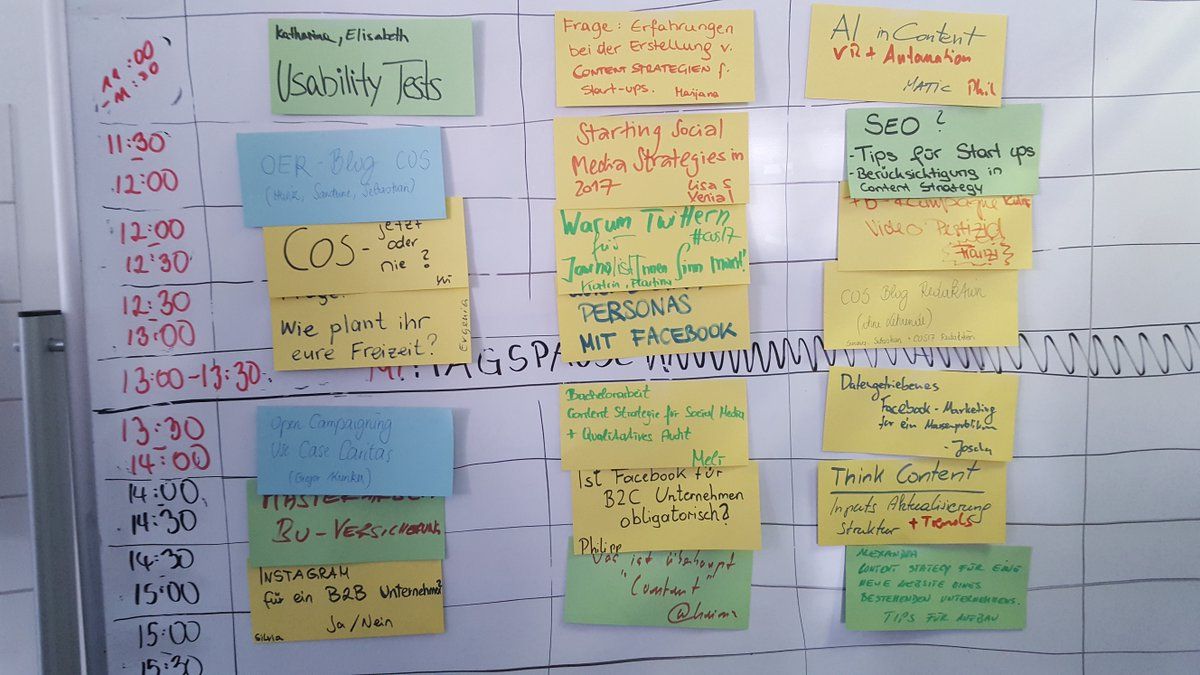 11:00
- 11:30
Katharina, Elisabeth
Usability Tests
Frage: Erfahrungen
bei der Erstellung v.
CONTENT STRATEGIEN f.
Start-ups. Marijana
AI in Content
VR + Automation
MATIC Phil
11:30
12:00
OER-Blog COS
Starting Social
Media Strategies in
2017 Lisa S
Xenia L
SEO ?
- Tips für Start ups
- Berücksichtigung in
Content Strategy
12:00
12:30
COS - jetzt
oder
nie?
Warum Twittern
für #cos17
JournalistInnen Sinn macht!
Video
12:30
13:00
Wie plant ihr
eure Freizeit?
Evgeniia
PERSONAS
MIT FACEBOOK
COS Blog Redaktion
13:00-13:30
MITTAGSPAUSE
13:30
14:00
Open Campaigning
Use Case Caritas
Bachelorarbeit
Content Strategie für Social Media
+ Qualitatives Audit
Meli
Datengetriebenes
Facebook-Marketing
für ein
- Joscha
14:00
14:30
MASTERARBEIT
BU-VERSICHERUNG
Ist Facebook für
B2C Unternehmen
obligatorisch?
Philipp
Think Content
Inputs Aktualisierung
Struktur + Trends
14:30
15:00
INSTAGRAM
für ein B2B Unternehmen?
Ja/Nein
Silvia
Was ist überhaupt
"Content"
ALEXANDRA
CONTENT STATEGY FÜR EINE
NEUE WEBSITE EINES
BESTEHENDEN UNTERNEHMENS.
TIPS FÜR AUFBAU
15:00
15:30